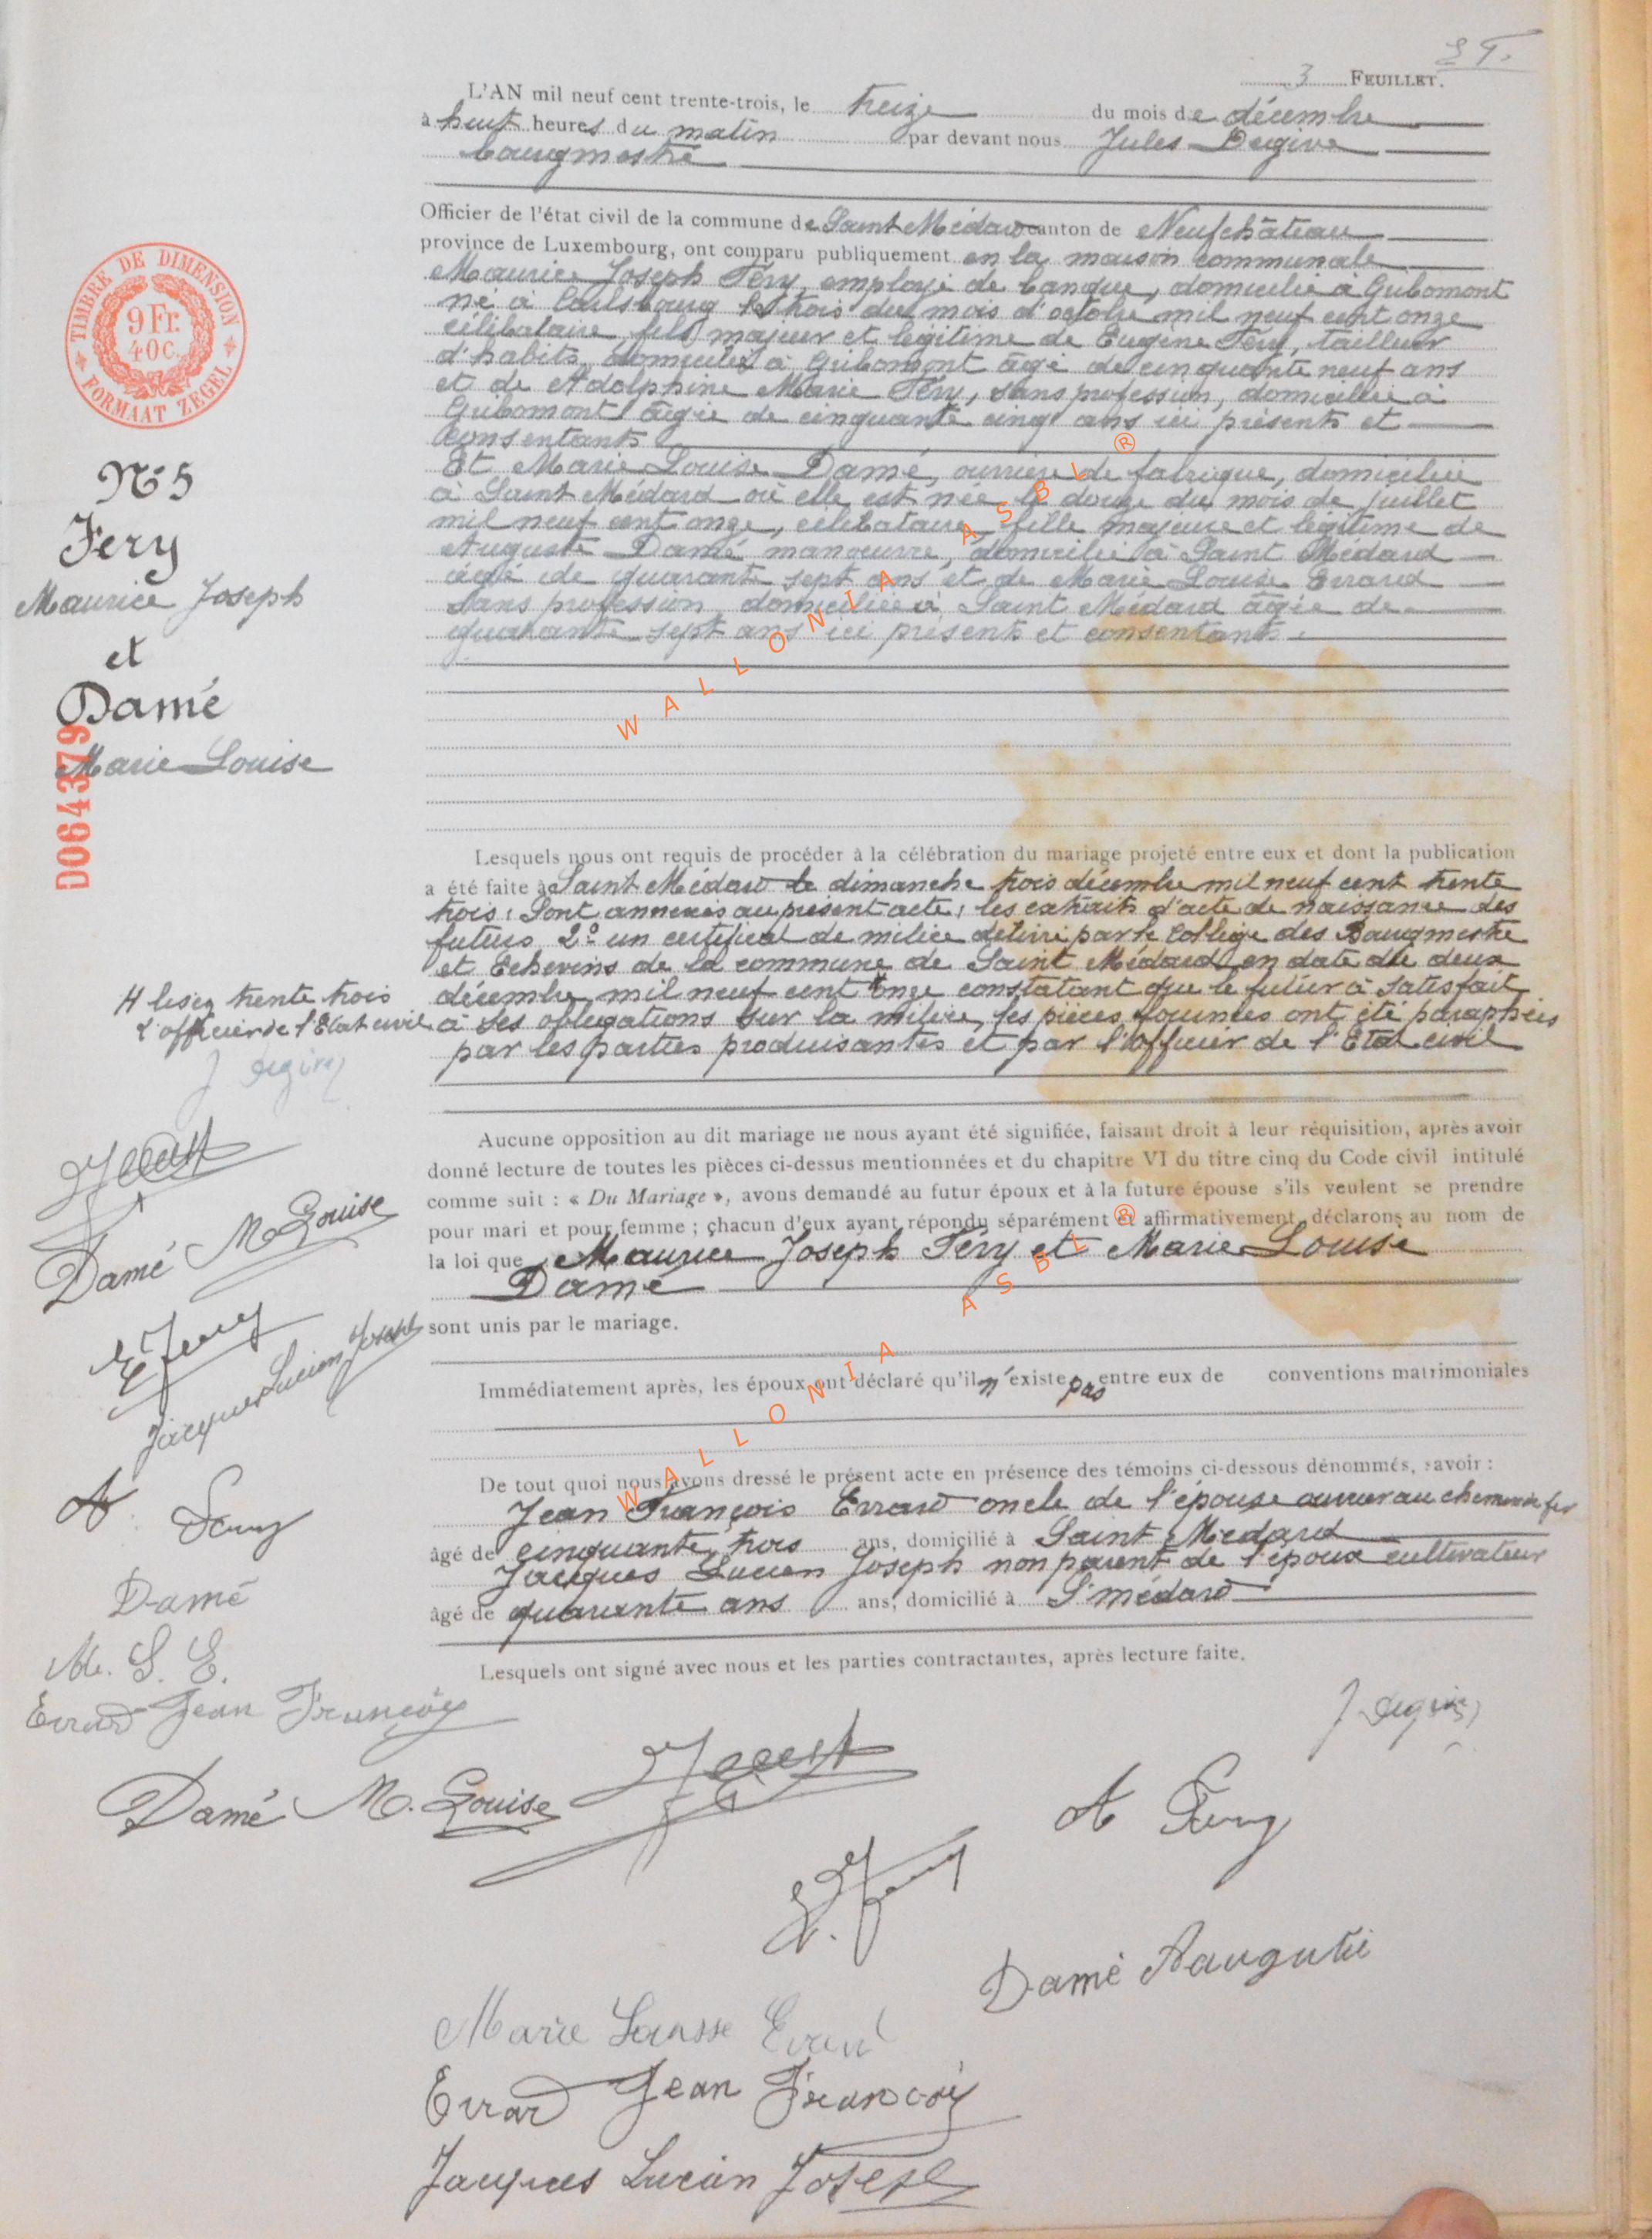 3 FEUILLET.
L'AN mil neuf cent trente-trois, le treize du mois de décembre
à huit heures du matin par devant nous Jules Degive
bourgmestre
Officier de l'état civil de la commune de Saint Médard canton de Neufchâteau
province de Luxembourg, ont comparu publiquement en la maison communale
Maurice Joseph Féry, employé de banque, domicilié à Gribomont
né à Carlsbourg le trois du mois d'octobre mil neuf cent onze
célibataire, fils majeur et légitime de Eugène Féry, tailleur
d'habits, domicilié à Gribomont âgé de cinquante neuf ans
et de Adolphine Marie Féry, sans profession, domiciliée à
Gribomont âgée de cinquante cinq ans ici présents et
consentants
Et Marie Louise Damé, ouvrière de fabrique, domiciliée
à Saint Médard où elle est née le douze du mois de juillet
mil neuf cent onze, célibataire, fille majeure et légitime de
Auguste Damé manoeuvre, domicilié à Saint Médard
âgé de quarante sept ans et de Marie Louise Errard
sans profession, domiciliée à Saint Médard âgée de
quarante sept ans ici présents et consentants.
TIMBRE DE DIMENSION
9 Fr.
40 C.
FORMAAT ZEGEL
N° 5
Fery
Maurice Joseph
et
Damé
Marie Louise
D064379
Lesquels nous ont requis de procéder à la célébration du mariage projeté entre eux et dont la publication
a été faite à Saint Médard le dimanche trois décembre mil neuf cent trente
trois; Sont annexés au présent acte; les extraits d'acte de naissance des
futurs 2° un certificat de milice délivré par le Collège des Bourgmestre
et Echevins de la commune de Saint Médard en date du deux
décembre mil neuf cent onze constatant que le futur à satisfait
à ses obligations sur la milice, les pièces fournies ont été paraphées
par les parties produisantes et par l'officier de l'Etat civil
H lisez trente trois
L'officier de l'Etat civil
J Degive
Aucune opposition au dit mariage ne nous ayant été signifiée, faisant droit à leur réquisition, après avoir
donné lecture de toutes les pièces ci-dessus mentionnées et du chapitre VI du titre cinq du Code civil intitulé
comme suit : « Du Mariage », avons demandé au futur époux et à la future épouse s'ils veulent se prendre
pour mari et pour femme ; chacun d'eux ayant répondu séparément et affirmativement, déclarons au nom de
la loi que Maurice Joseph Féry et Marie Louise
Damé
sont unis par le mariage.
Immédiatement après, les époux ont déclaré qu'il n'existe pas entre eux de conventions matrimoniales
De tout quoi nous avons dressé le présent acte en présence des témoins ci-dessous dénommés, savoir :
Jean François Errard oncle de l'épouse ouvrier au chemin de fer
âgé de cinquante trois ans, domicilié à Saint Médard
Jacques Lucien Joseph non parent de l'époux cultivateur
âgé de quarante ans ans, domicilié à St médard
Lesquels ont signé avec nous et les parties contractantes, après lecture faite.
Damé M. Louise
E Fery
Jacques Lucien Joseph
A Fery
Damé
M. L. E.
Errard Jean François
J Degive
Damé M. Louise
A Fery
E. Fery
Damé Aaugutie
Marie Lousse Erard
Errard Jean François
Jacques Lucien Joseph
WALLONIA ASBL ®
WALLONIA ASBL ®